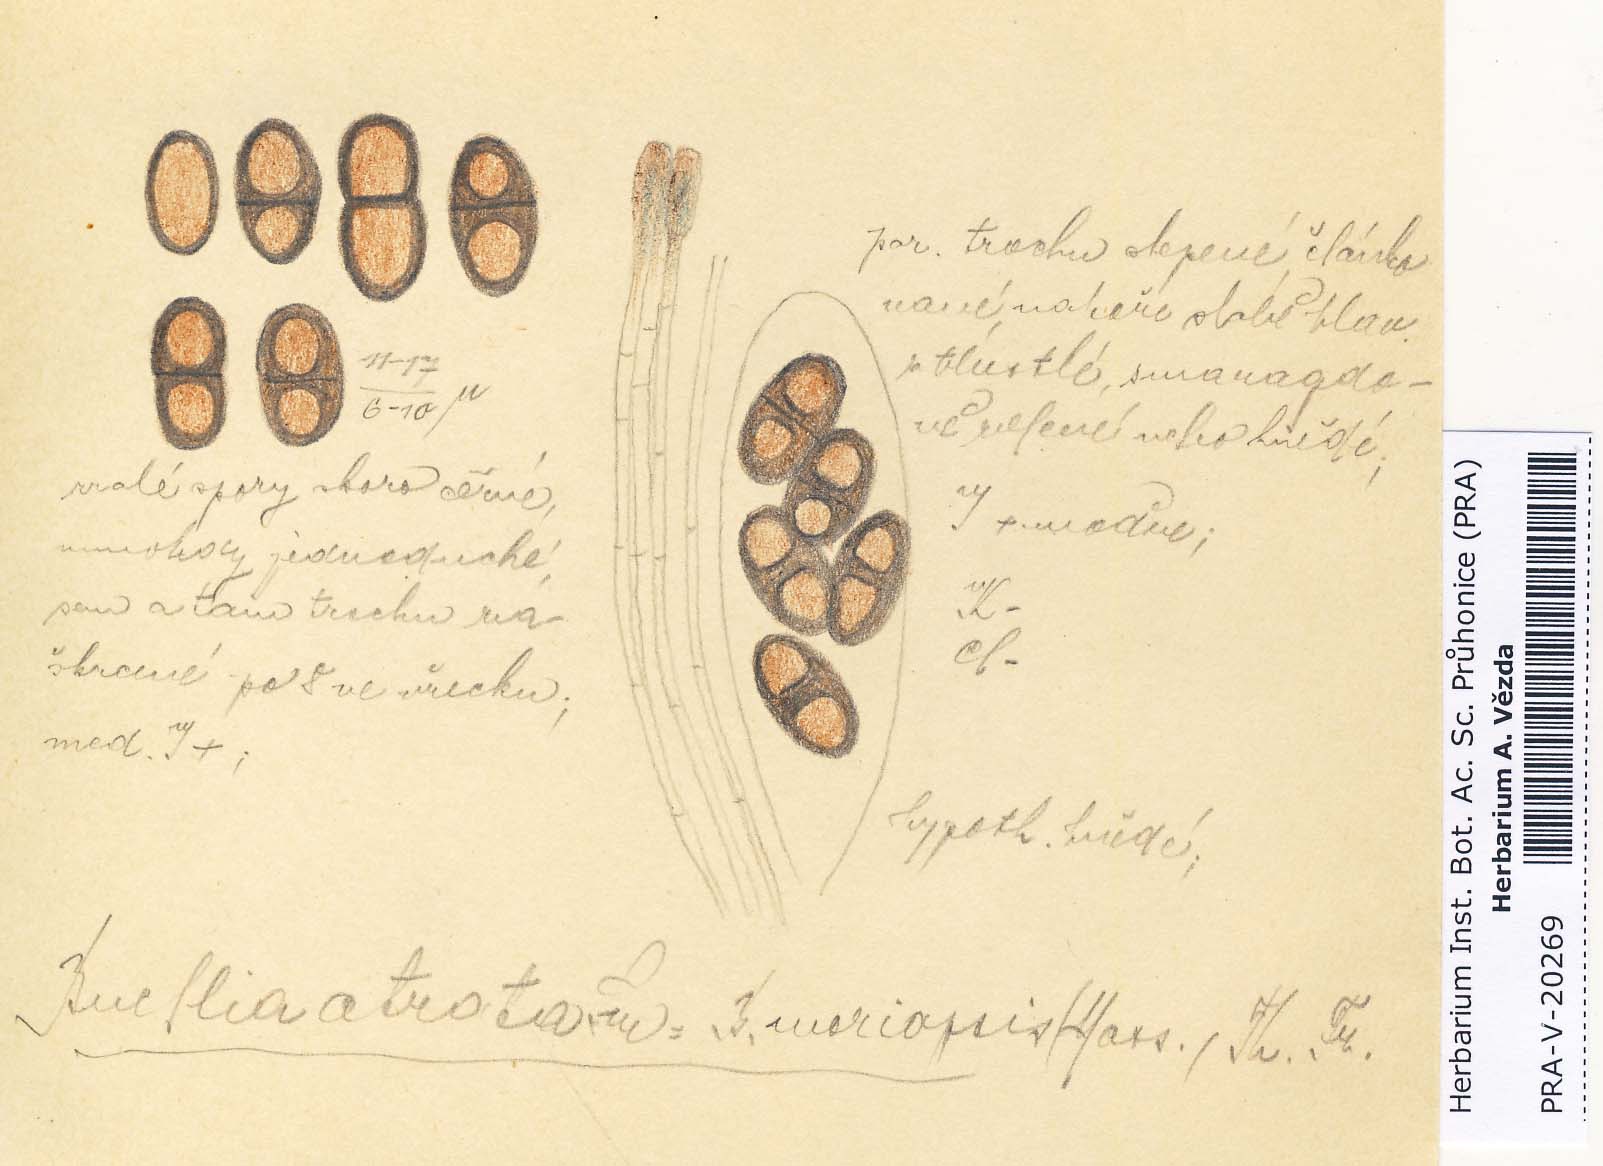 11-17
6-10 μ
zralé spory skoro černé,
mnohdy jednoduché,
sem a tam trochu za-
škrcené po 8 ve vřecku;
med. J+;
par. trochu slepené, článko
vané, nahoře slabě hlav.
ztlustlé, smaragdo-
vě zelené nebo hnědé;
J + modře;
K-
Cl-
hypoth. hnědé;
Buellia atrata = B. moriopsis (Mass., Th. Fr.
Herbarium Inst. Bot. Ac. Sc. Průhonice (PRA)
Herbarium A. Vězda
PRA-V-20269